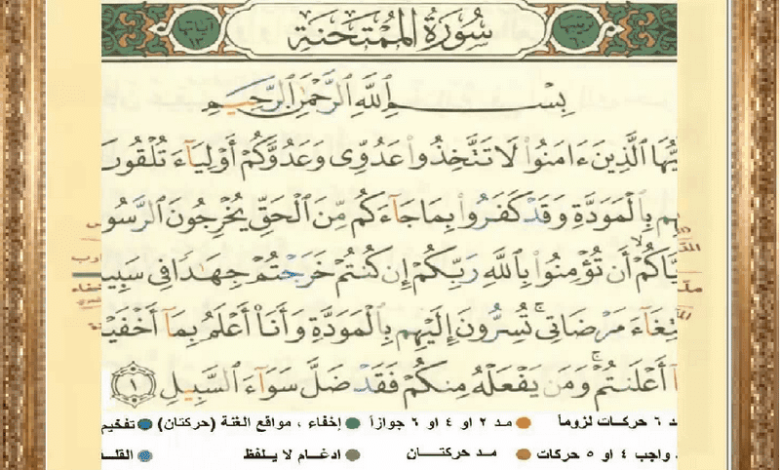 سُورَةُ المُمْتَحَنَةِ
بِسْمِ ٱللَّهِ ٱلرَّحْمَٰنِ ٱلرَّحِيمِ
يُّهَا ٱلَّذِينَ ءَامَنُوا۟ لَا تَتَّخِذُوا۟ عَدُوِّى وَعَدُوَّكُمْ أَوْلِيَآءَ تُلْقُونَ
هِم بِٱلْمَوَدَّةِ وَقَدْ كَفَرُوا۟ بِمَا جَآءَكُم مِّنَ ٱلْحَقِّ يُخْرِجُونَ ٱلرَّسُو
يَّاكُمْ ۙ أَن تُؤْمِنُوا۟ بِٱللَّهِ رَبِّكُمْ إِن كُنتُمْ خَرَجْتُمْ جِهَٰدًا فِى سَبِي
تِغَآءَ مَرْضَاتِى ۚ تُسِرُّونَ إِلَيْهِم بِٱلْمَوَدَّةِ وَأَنَا۠ أَعْلَمُ بِمَآ أَخْفَيْ
آ أَعْلَنتُمْ ۚ وَمَن يَفْعَلْهُ مِنكُمْ فَقَدْ ضَلَّ سَوَآءَ ٱلسَّبِيلِ ١
د ٦ حركات لزوماً مد ٢ او ٤ او ٦ جوازاً إخفاء ، مواقع الغنة (حركتان) تفخيم
واجب ٤ او ٥ حركات مد حركتان ادغام لا يلفظ القلة